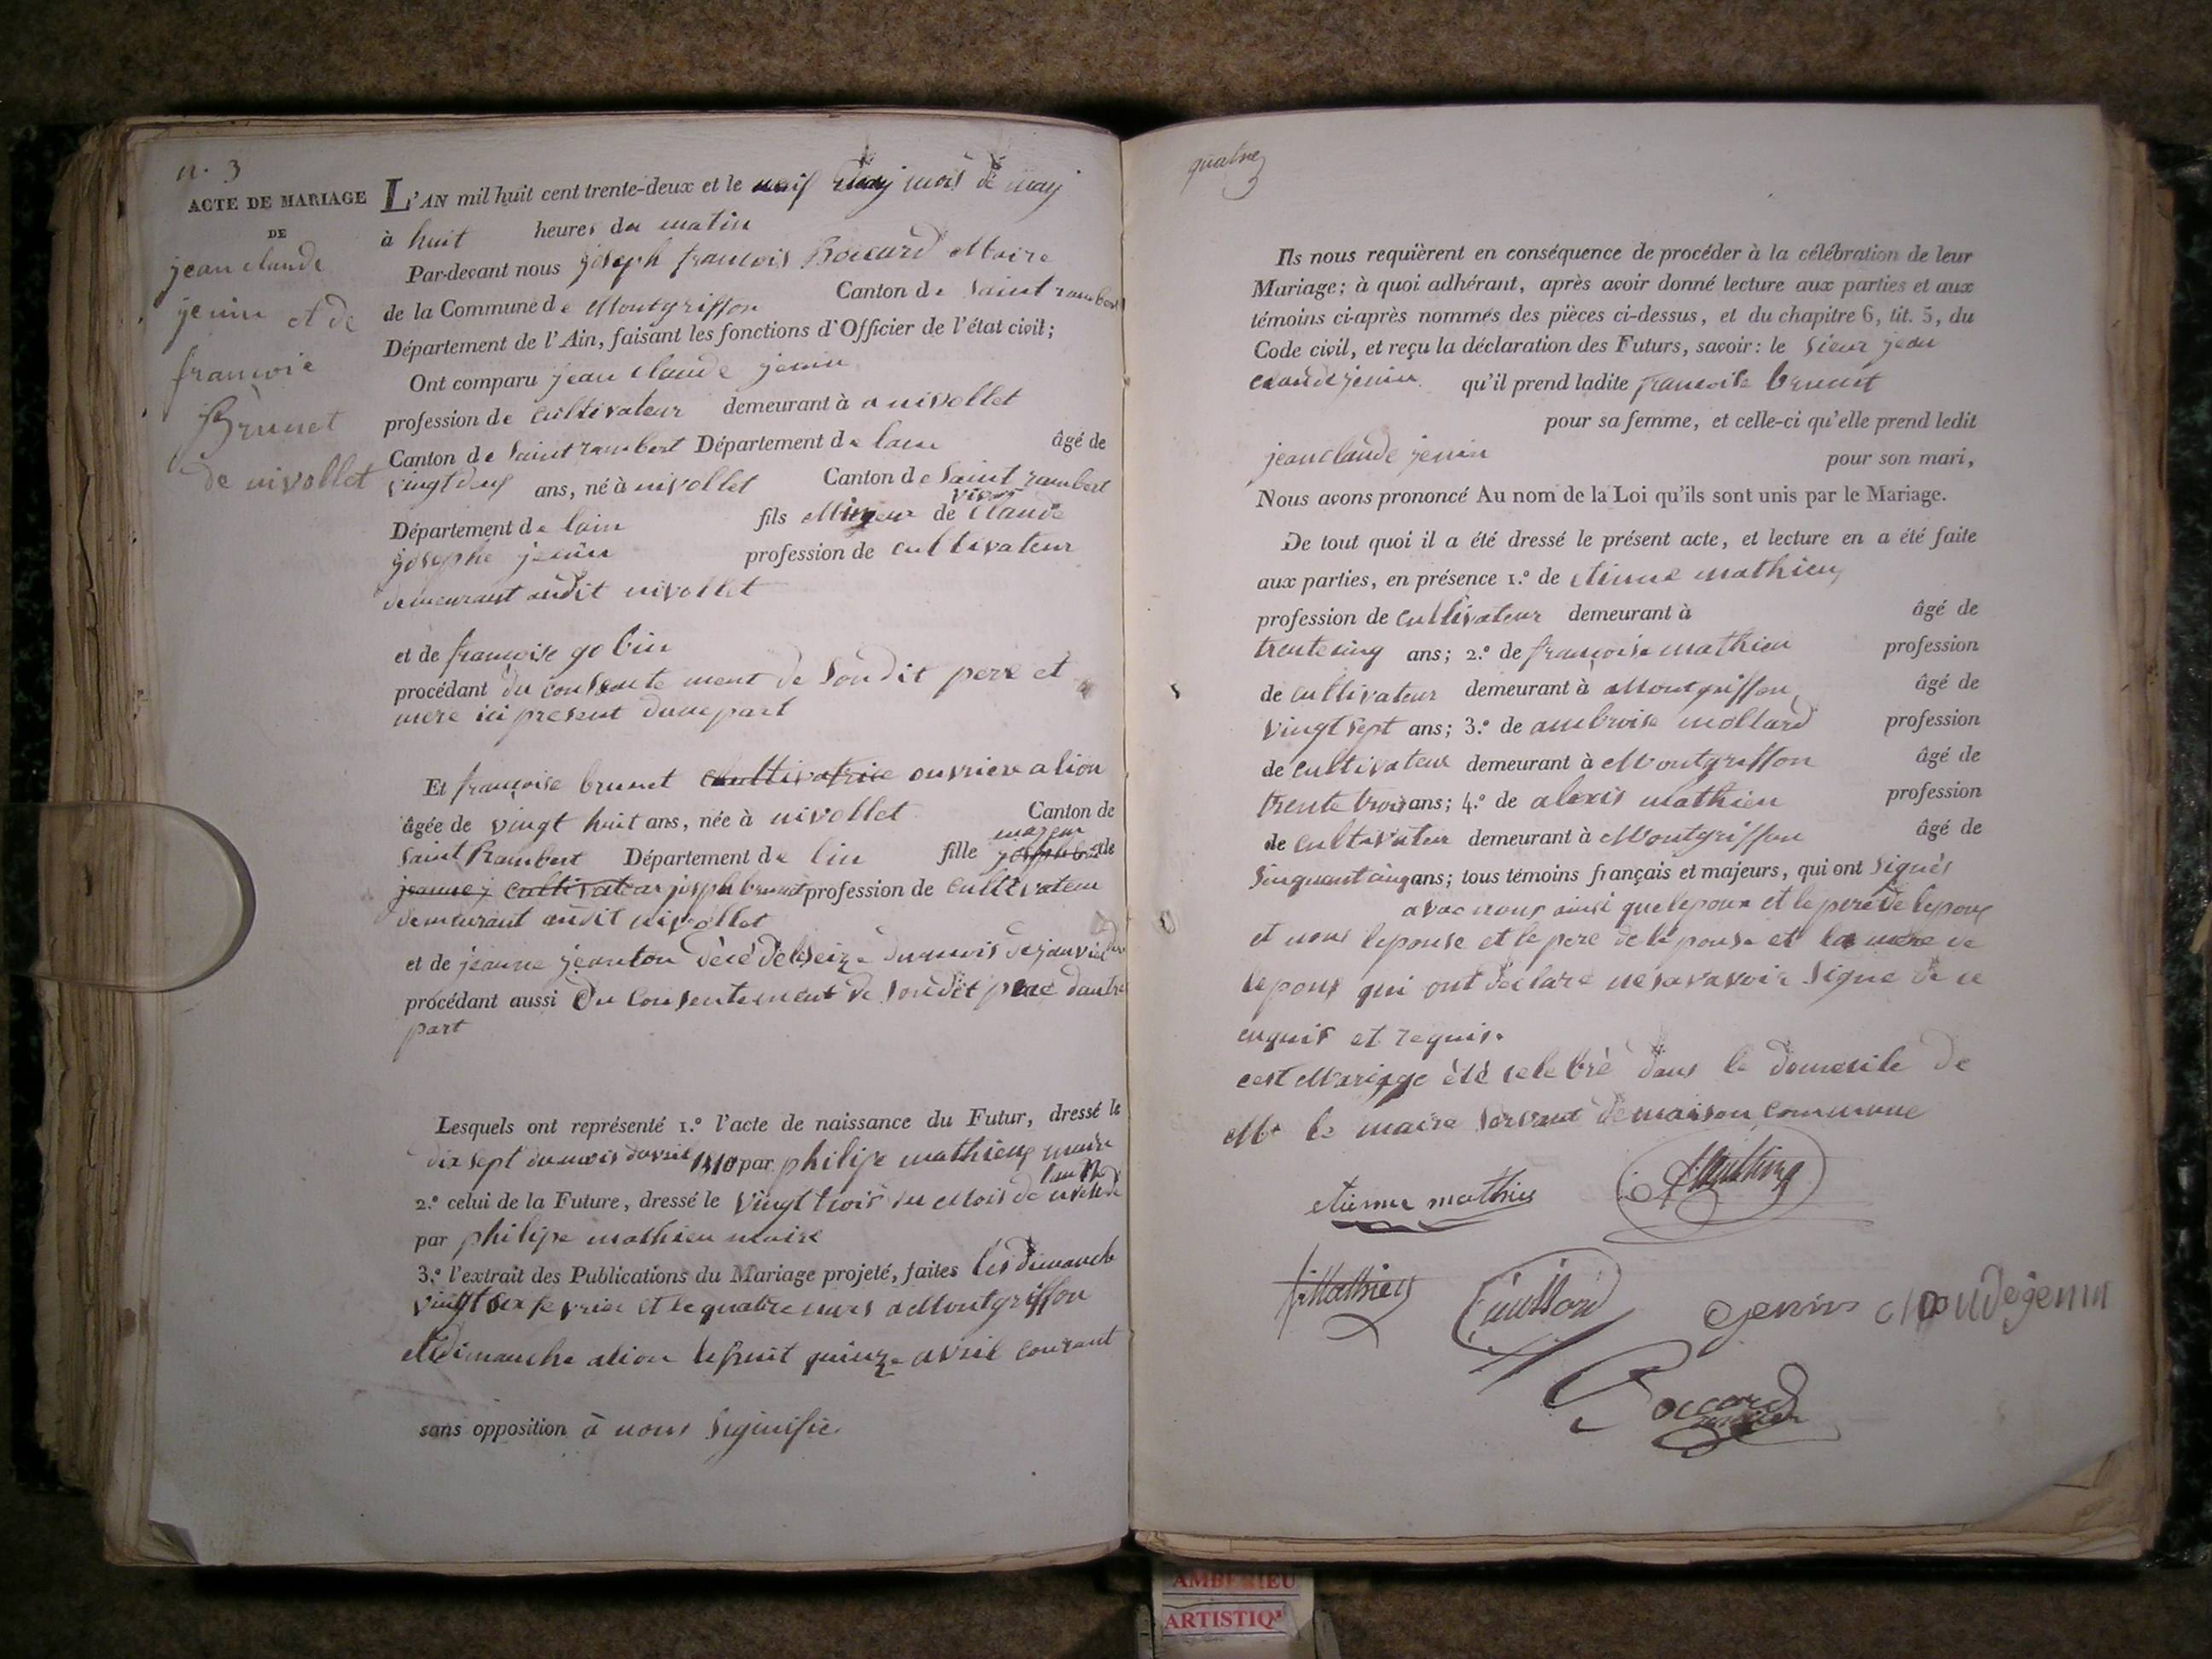 n. 3
ACTE DE MARIAGE
DE
jean claude
jenin et de
francoie
Brunet
de nivollet
L'AN mil huit cent trente-deux et le mois de may
à huit heures du matin
Par-devant nous joseph francois Boccard Maire
de la Commune de Montgriffon Canton de Saint rambert
Département de l'Ain, faisant les fonctions d'Officier de l'état civil;
Ont comparu jean claude jenin
profession de cultivateur demeurant à a nivollet
Canton de Saint rambert Département de lain âgé de
vingt deux ans, né à nivollet Canton de Saint rambert
Département de lain fils Mineur de Claude
josephe jenin profession de cultivateur
demeurant audit nivollet
et de françoise gobin
procédant du consente ment de Son dit pere et
mere ici present dune part
Et françoise brunet cultivatrice ouvriere a lion
âgée de vingt huit ans, née à nivollet Canton de
Saint Rambert Département de lin fille majeur de
cultivateur joseph brunet profession de cultivateur
demeurant audit nivollet
et de jeanne jeanton décédé le seize du mois de janvier
procédant aussi Du Consentement de Soudit pere dautre
part
Lesquels ont représenté 1.° l'acte de naissance du Futur, dressé le
dix sept du mois davril 1810 par philipe mathieu maire
2.° celui de la Future, dressé le vingt trois du Mois de
par philipe mathieu maire
3.° l'extrait des Publications du Mariage projeté, faites les dimanche
vingt six fevrier et le quatre mars a Montgriffon
et dimanche a lion le huit quinze avril courant
sans opposition à nous Signifié
quatre
Ils nous requièrent en conséquence de procéder à la célébration de leur
Mariage; à quoi adhérant, après avoir donné lecture aux parties et aux
témoins ci-après nommés des pièces ci-dessus, et du chapitre 6, tit. 5, du
Code civil, et reçu la déclaration des Futurs, savoir: le Sieur jean
claude jenin qu'il prend ladite francoise brunet
pour sa femme, et celle-ci qu'elle prend ledit
jean claude jenin pour son mari,
Nous avons prononcé Au nom de la Loi qu'ils sont unis par le Mariage.
De tout quoi il a été dressé le présent acte, et lecture en a été faite
aux parties, en présence 1.° de etienne mathieu
profession de cultivateur demeurant à âgé de
trente cinq ans; 2.° de françoise mathieu profession
de cultivateur demeurant à Montgriffon âgé de
vingt sept ans; 3.° de ambroise mollard profession
de cultivateur demeurant à Montgriffon âgé de
trente trois ans; 4.° de alexis mathieu profession
de cultivateur demeurant à Montgriffon âgé de
ans; tous témoins français et majeurs, qui ont Signés
avac nous ainsi que lepoux et le pere de lepoux
et nous lepouse et le pere de le pouse et la mere de
lepoux qui ont déclaré ne savavoir Signe de ce
enquis et requis.
cest Mariage été celebré dans le domesile de
Mr le maire Servant de maison commune
etienne mathieu
Mathieu
jenin claudejenin
Boccard
AMBERIEU
ARTISTIQ